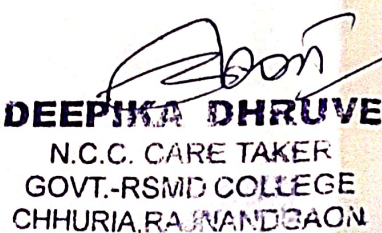 DEEPIKA DHRUVE
N.C.C. CARE TAKER
GOVT.-RSMD COLLEGE
CHHURIA,RAJNANDGAON